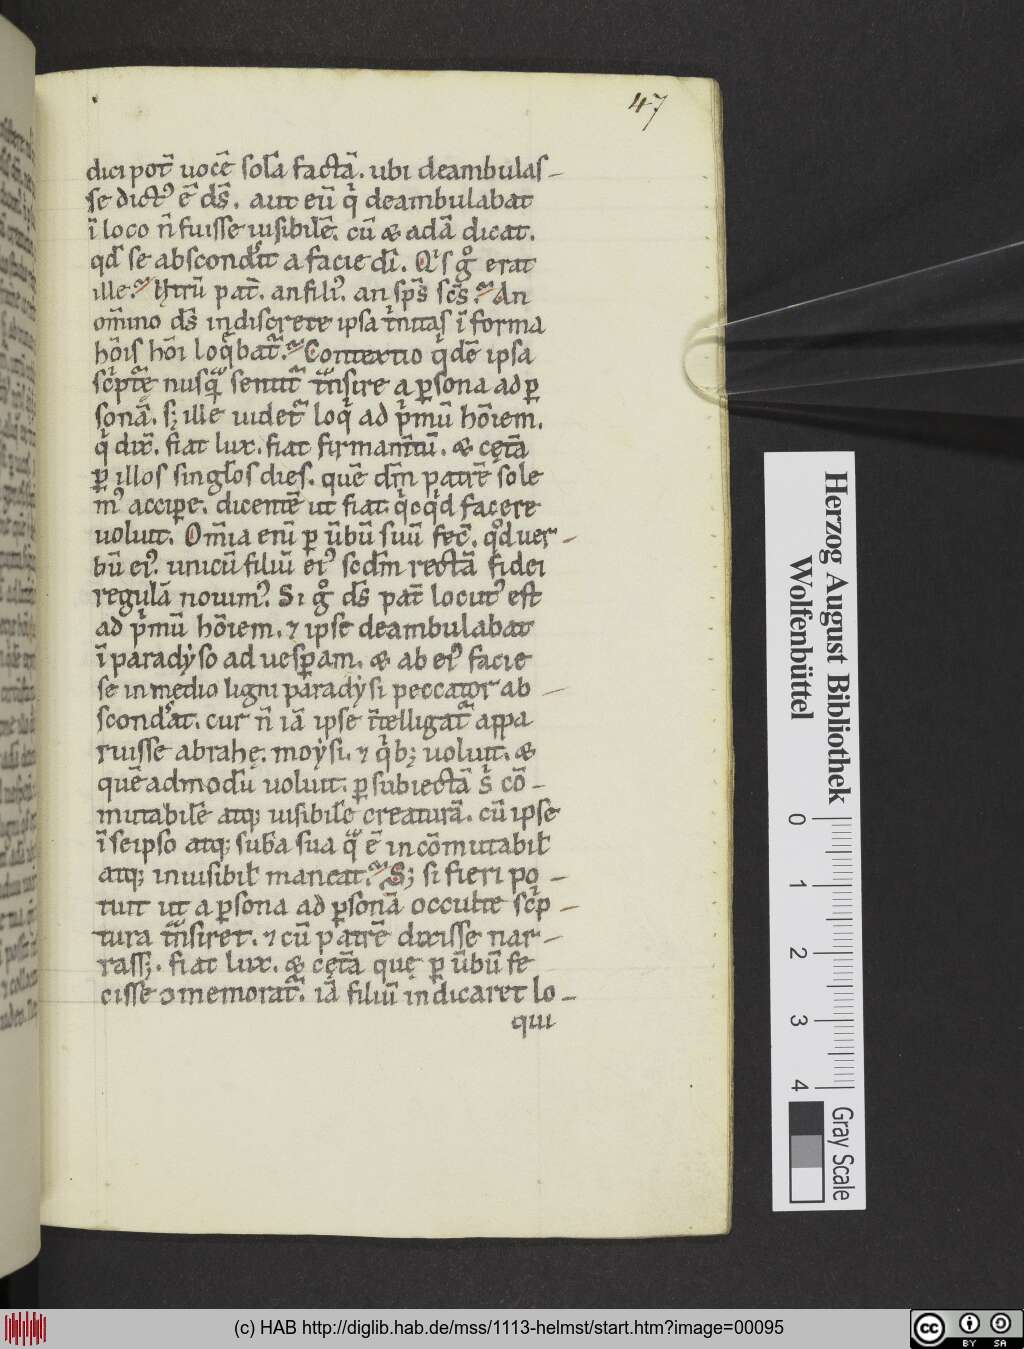 47
dici pot̄ uocē sola̅ facta̅. ubi deambulas-
se dict᾽ ē ds̄. aut eu̅ qͥ deambulabat
ī loco n̄ fuisse iuisibile̅. cu̅ & ada̅ dicat.
qd̄ se absconderit a facie dī. Qͥs gͦ erat
ille. Utru̅ pat̄. an fili᾽. an sps̄ scs̄. An
om̄ino ds̄ indiscrete ipsa tͥnitas ī forma
hōis hōi loqͥbat̄. Contextio qͥde̅ ipsa
scͥptę nusqᷓ sentit̄ tᷓnsire a ꝑsona ad ꝑ
sona̅. s; ille uidet̄ loqͥ ad pͥmu̅ hōiem.
qͥ dix̄. fiat lux. fiat firmam̄tu̅. & cęt̄a
ꝑ illos singl̄os dies. que̅ dm̄ patre̅ sole
m᾽ accipe. dicente̅ ut fiat qͥcqͥd facere
uoluit. Om̄ia eni̅ ꝑ ūbu̅ suu̅ fec̄. qͦd uer-
bu̅ ei᾽. unicu̅ filiu̅ ei᾽ scd̄m recta̅ fidei
regula̅ nouim᾽. Si gͦ ds̄ pat̄ locut᾽ est
ad pͥmu̅ hōiem. ⁊ ipse deambulabat
ī paradẏso ad uesꝑam. & ab ei᾽ facie
se in medio ligni paradẏsi peccator ab-
sconderat. cur n̄ ia̅ ipse īntelligat̄ appa
ruisse abrahę. moẏsi. ⁊ qͥb; uoluit. &
que̅admodu̅ uoluit. ꝑ subiecta̅ sͥ co̅-
mutabile̅ atq; uisibile̅ creatura̅. cu̅ ipse
ī seipso atq; sub̄a sua qᷓ ē inco̅mutabil̄
atq; inuisibil̄ maneat. S; si fieri po-
tuit ut a ꝑsona ad ꝑsona̅ occulte scͥp-
tura tᷓnsiret. ⁊ cu̅ patre̅ dixisse nar-
rass;. fiat lux. & cęt̄a quę ꝑ ūbu̅ fe
cisse ↄmemorat̄. ia̅ filiu̅ indicaret lo-
qui
Herzog August Bibliothek
Wolfenbüttel
0
1
2
3
4
Gray Scale
(c) HAB http://diglib.hab.de/mss/1113-helmst/start.htm?image=00095
cc
BY SA